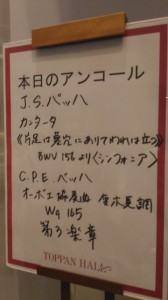 本日のアンコール
J.S.バッハ
カンタータ
《片足は墓穴にありてわれは立つ》
BWV 156より〈シンフォニア〉
C.P.E.バッハ
オーボエ協奏曲 変ホ長調
Wq 165
第3楽章
TOPPAN HALL